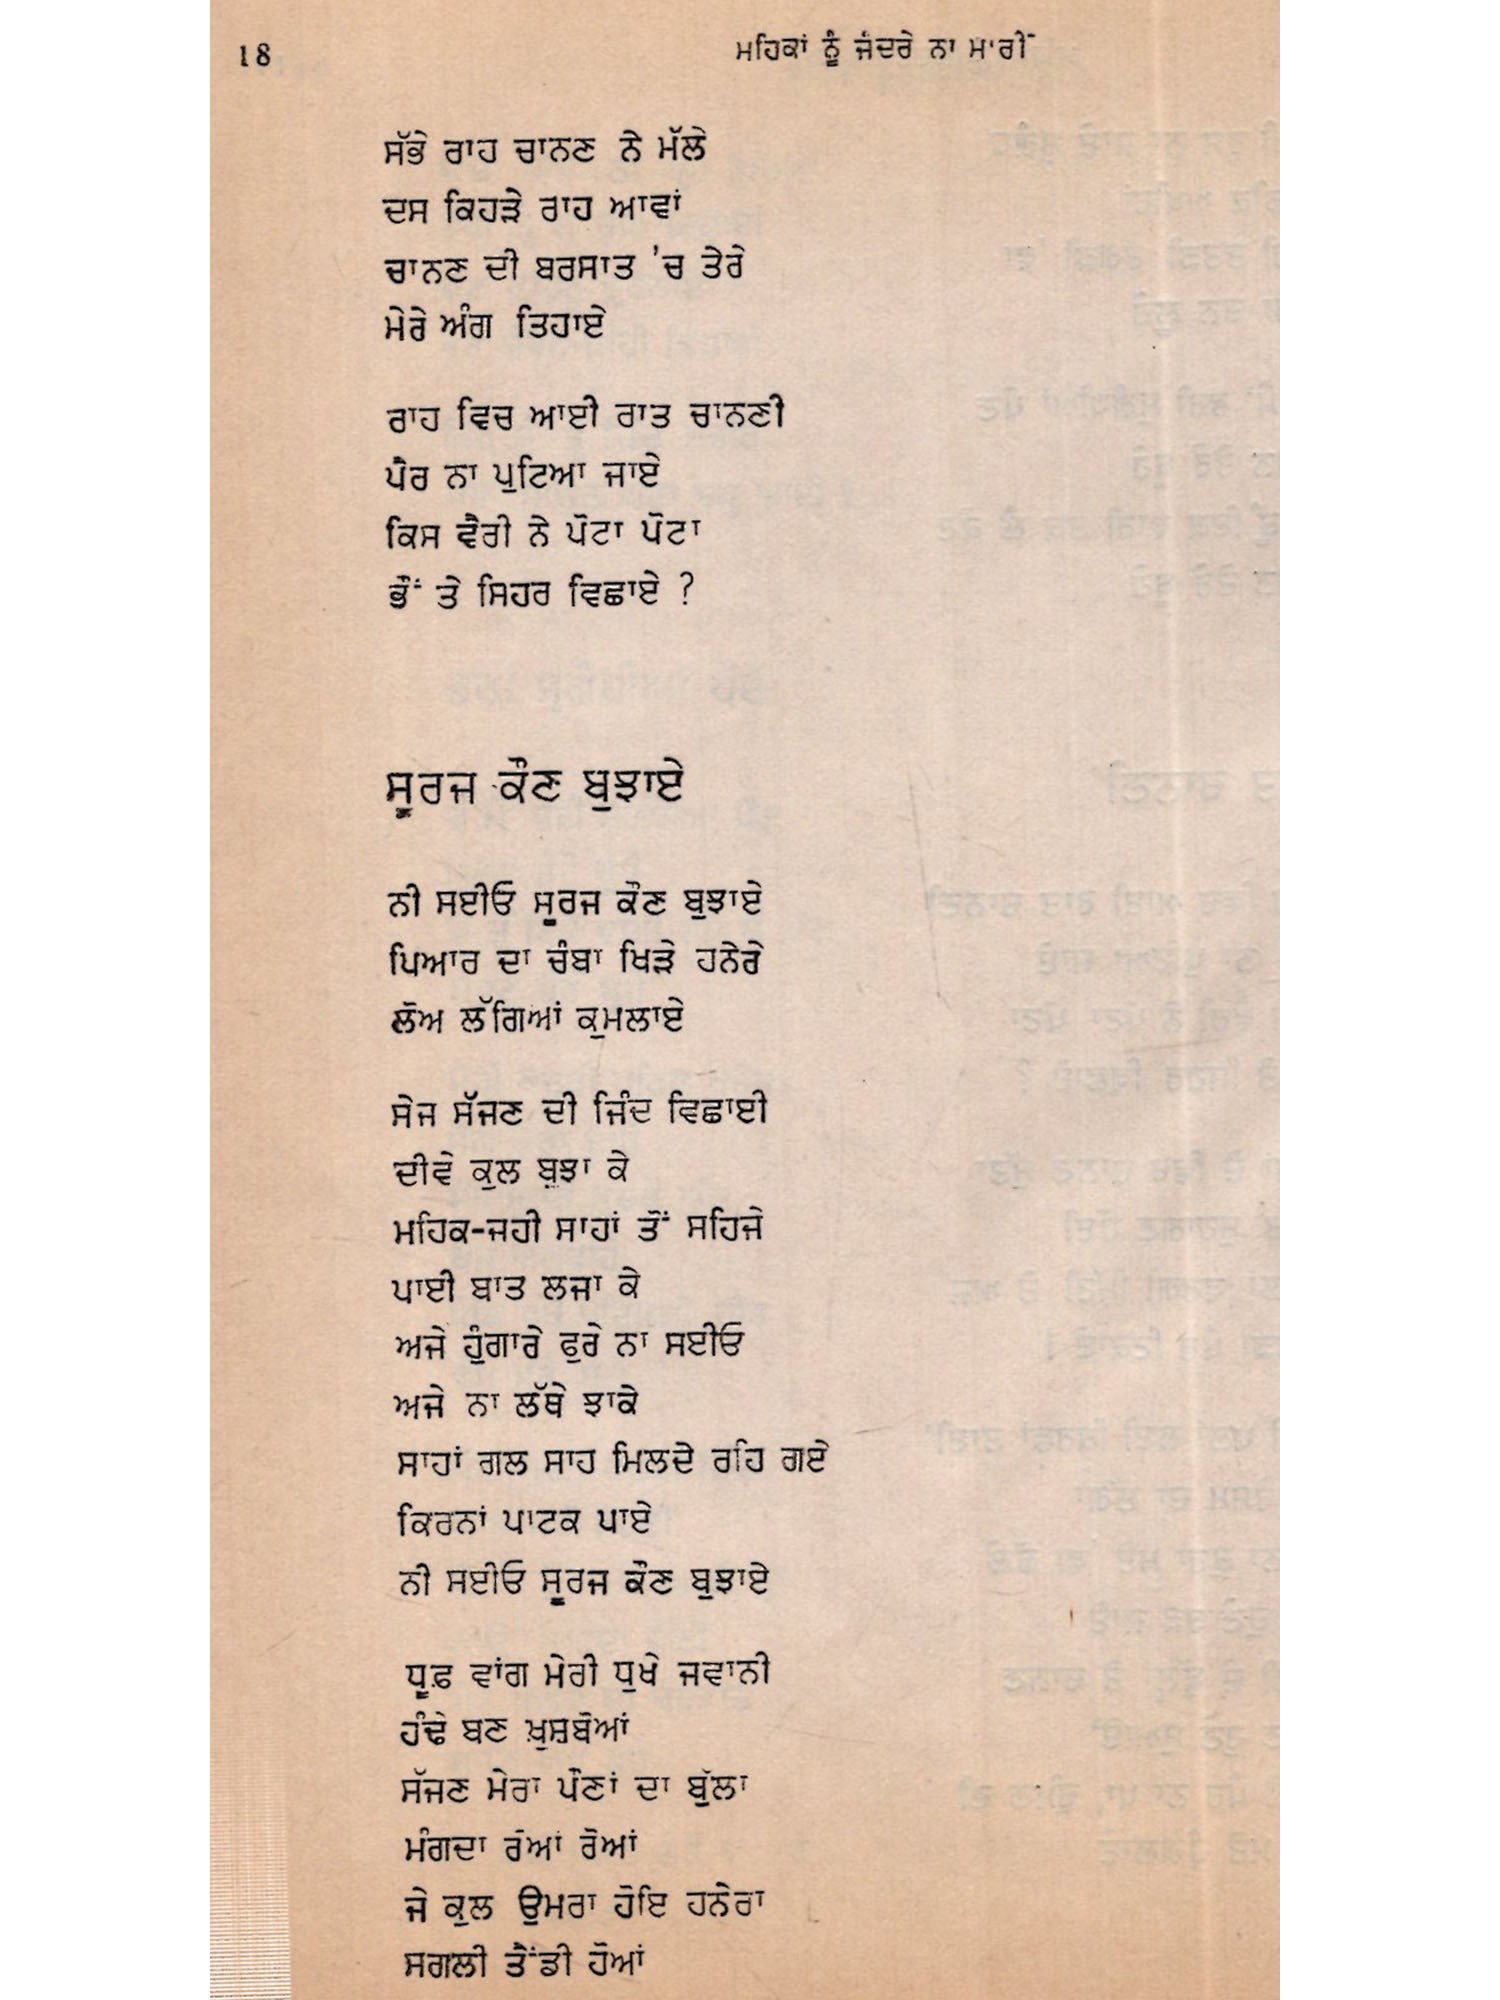 18
ਮਹਿਕਾਂ ਨੂੰ ਜੰਦਰੇ ਨਾ ਮਾਰੀਂ
ਸੱਭੇ ਰਾਹ ਚਾਨਣ ਨੇ ਮੱਲੇ
ਦਸ ਕਿਹੜੇ ਰਾਹ ਆਵਾਂ
ਚਾਨਣ ਦੀ ਬਰਸਾਤ 'ਚ ਤੇਰੇ
ਮੇਰੇ ਅੰਗ ਤਿਹਾਏ
ਰਾਹ ਵਿਚ ਆਈ ਰਾਤ ਚਾਨਣੀ
ਪੈਰ ਨਾ ਪੁਟਿਆ ਜਾਏ
ਕਿਸ ਵੈਰੀ ਨੇ ਪੋਟਾ ਪੋਟਾ
ਭੌਂ ਤੇ ਸਿਹਰ ਵਿਛਾਏ ?
ਸੂਰਜ ਕੌਣ ਬੁਝਾਏ
ਨੀ ਸਈਓ ਸੂਰਜ ਕੌਣ ਬੁਝਾਏ
ਪਿਆਰ ਦਾ ਚੰਬਾ ਖਿੜੇ ਹਨੇਰੇ
ਲੋਅ ਲੱਗਿਆਂ ਕੁਮਲਾਏ
ਸੇਜ ਸੱਜਣ ਦੀ ਜਿੰਦ ਵਿਛਾਈ
ਦੀਵੇ ਕੁਲ ਬੁਝਾ ਕੇ
ਮਹਿਕ-ਜਹੀ ਸਾਹਾਂ ਤੋਂ ਸਹਿਜੇ
ਪਾਈ ਬਾਤ ਲਜਾ ਕੇ
ਅਜੇ ਹੁੰਗਾਰੇ ਫੁਰੇ ਨਾ ਸਈਓ
ਅਜੇ ਨਾ ਲੱਥੇ ਝਾਕੇ
ਸਾਹਾਂ ਗਲ ਸਾਹ ਮਿਲਦੇ ਰਹਿ ਗਏ
ਕਿਰਨਾਂ ਪਾਟਕ ਪਾਏ
ਨੀ ਸਈਓ ਸੂਰਜ ਕੌਣ ਬੁਝਾਏ
ਧੂਫ਼ ਵਾਂਗ ਮੇਰੀ ਧੁਖੇ ਜਵਾਨੀ
ਹੰਢੇ ਬਣ ਖ਼ੁਸ਼ਬੋਆਂ
ਸੱਜਣ ਮੇਰਾ ਪੌਣਾਂ ਦਾ ਬੁੱਲਾ
ਮੰਗਦਾ ਰੋਆਂ ਰੋਆਂ
ਜੇ ਕੁਲ ਉਮਰਾ ਹੋਇ ਹਨੇਰਾ
ਸਗਲੀ ਤੈਂਡੀ ਹੋਆਂ